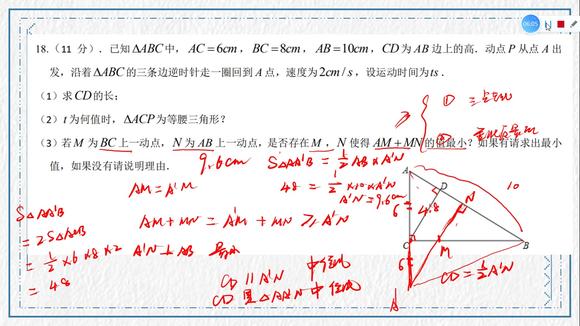 06:05
18.（11 分）. 已知 ΔABC 中, AC=6cm, BC=8cm, AB=10cm, CD 为 AB 边上的高. 动点 P 从点 A 出
发，沿着 ΔABC 的三条边逆时针走一圈回到 A 点，速度为 2cm/s，设运动时间为 ts .
（1）求 CD 的长;
① 三
（2）t 为何值时，ΔACP 为等腰三角形?
②
（3）若 M 为 BC 上一动点, N 为 AB 上一动点, 是否存在 M , N 使得 AM+MN 的值最小? 如果有请求出最小
值，如果没有请说明理由.
9.6cm
S△AA'B = 1/2 AB × A'N
AM = A'M
48 = 1/2 × 10 × A'N
A'N = 9.6cm
S△AA'B
= 2S△ABC
= 1/2 × 6 × 8 × 2
= 48
AM + MN = A'M + MN ≥ A'N
A'N ⊥ AB
CD ∥ A'N 中位线
CD 是 △AA'N 中位线
A
10
D
N
6
4.8
C
M
B
6
A'
CD = 1/2 A'N